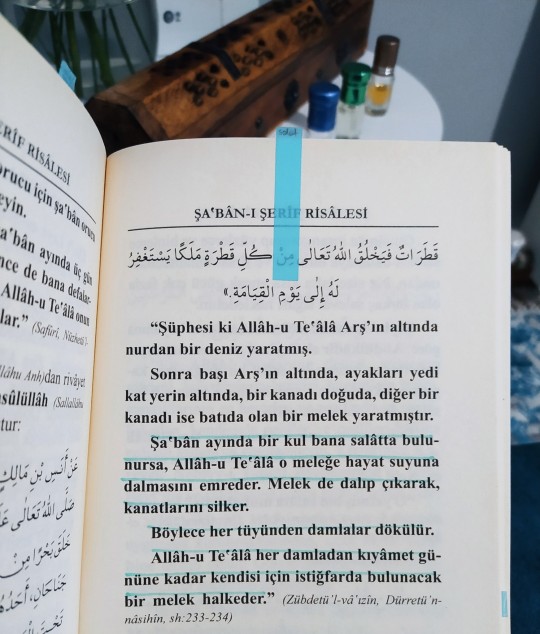 ERÎF RİSÂLESİ
orucu için şa'bân orucu
eyin.
a'bân ayında üç gün
nce de bana defalar-
Allâh-u Te'âlâ onun
lar." (Safûrî, Nüzhetü'l-
llâhu Anh)dan rivâyet
asûlüllâh (Sallallâhu
tur:
عَنْ أَنَسِ بْنِ مَالِكٍ
صَلَّى اللهُ تَعَالَى عَلَ
خَلَقَ بَحْرًا مِنْ
جَنَاحَانِ، أَحَدُهُ
تَحْتَ
ŞA'BÂN-I ŞERÎF RİSÂLESİ
قَطَرَاتٌ فَيَخْلُقُ اللهُ تَعَالَى مِنْ كُلِّ قَطْرَةٍ مَلَكًا يَسْتَغْفِرُ
لَهُ إِلَى يَوْمِ الْقِيَامَةِ.»
"Şüphesi ki Allâh-u Te'âlâ Arş'ın altında
nurdan bir deniz yaratmış.
Sonra başı Arş'ın altında, ayakları yedi
kat yerin altında, bir kanadı doğuda, diğer bir
kanadı ise batıda olan bir melek yaratmıştır.
Şa'bân ayında bir kul bana salâtta bulu-
nursa, Allâh-u Te'âlâ o meleğe hayat suyuna
dalmasını emreder. Melek de dalıp çıkarak,
kanatlarını silker.
Böylece her tüyünden damlalar dökülür.
Allâh-u Te'âlâ her damladan kıyâmet gü-
nüne kadar kendisi için istiğfarda bulunacak
bir melek halkeder." (Zübdetü'l-vâ'ızîn, Dürretü'n-
nâsihîn, sh:233-234)